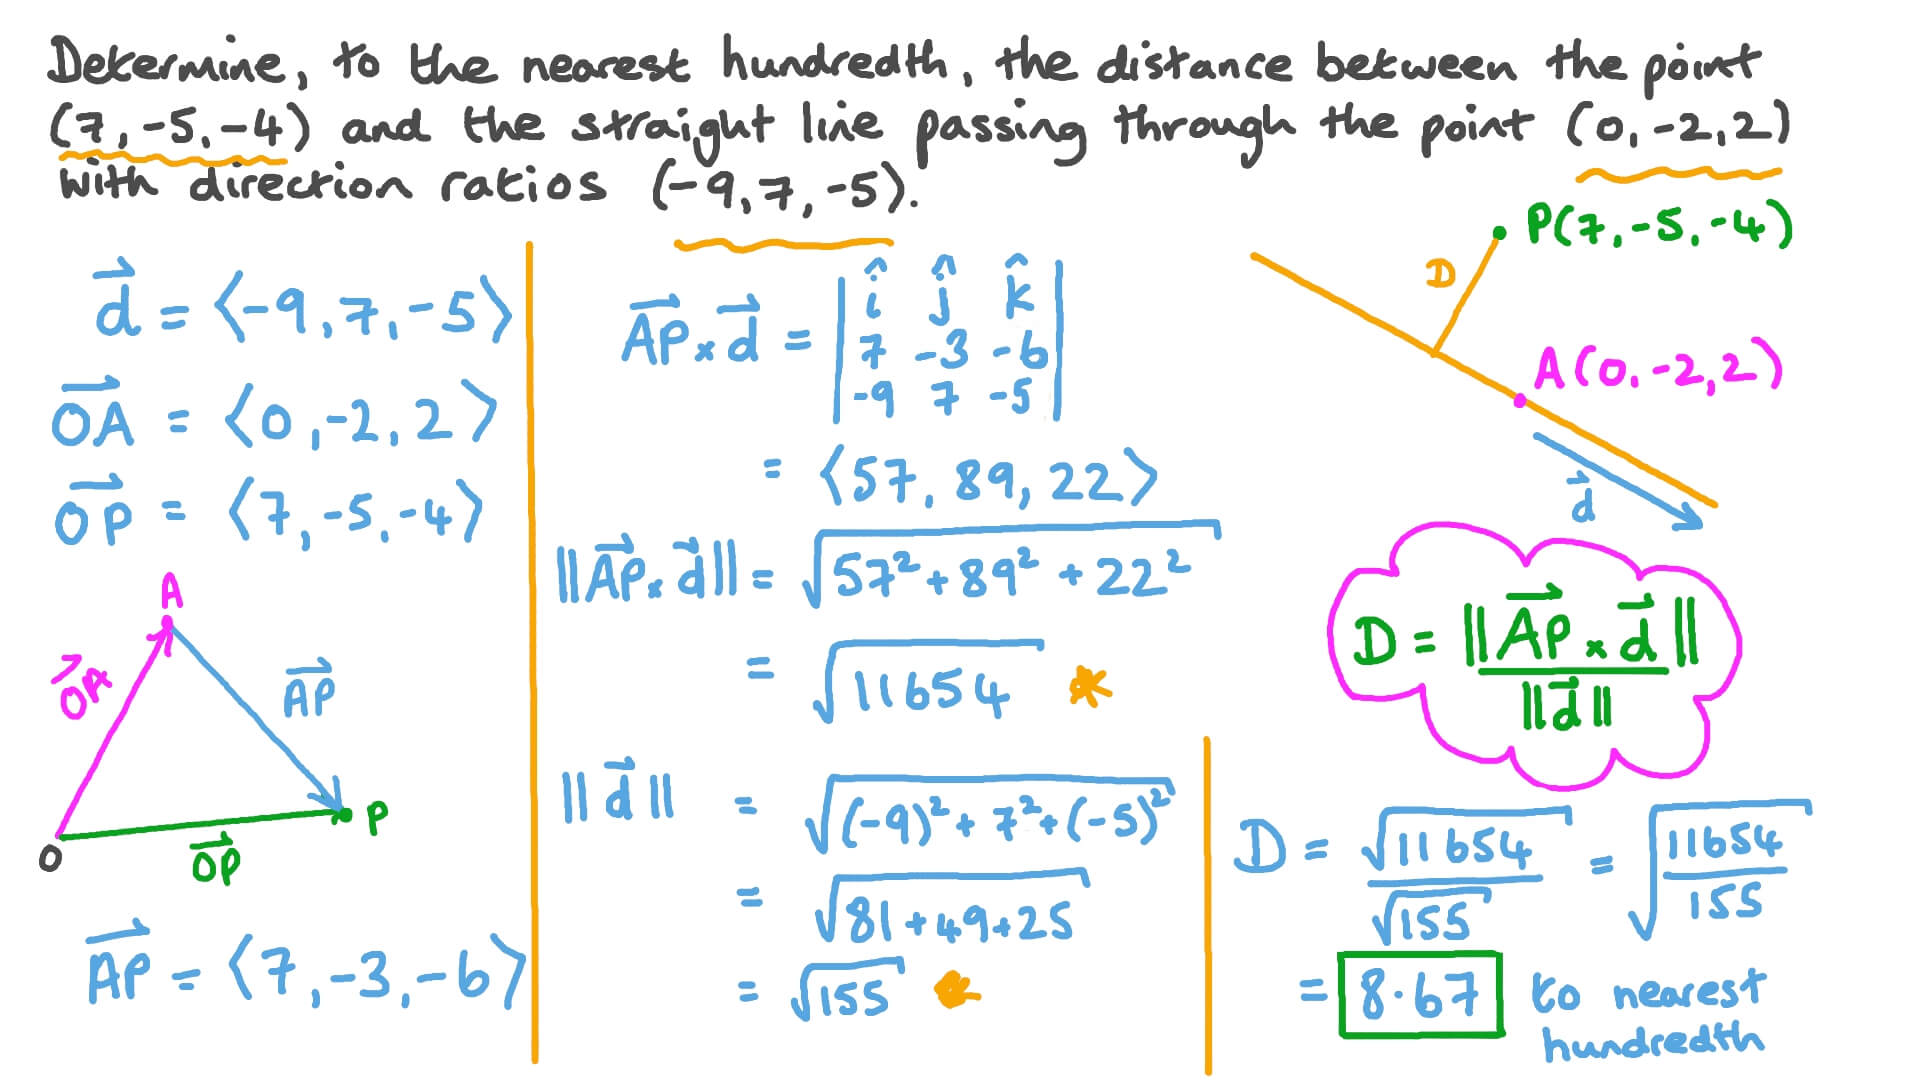 Determine, to the nearest hundredth, the distance between the point
(7,-5,-4) and the straight line passing through the point (0,-2,2)
with direction ratios (-9,7,-5).
d⃗ = ⟨-9,7,-5⟩
OA⃗ = ⟨0,-2,2⟩
OP⃗ = ⟨7,-5,-4⟩
A
OA⃗
AP⃗
P
O
OP⃗
AP⃗ = ⟨7,-3,-6⟩
AP⃗ × d⃗ = | î ĵ k̂ |
| 7 -3 -6 |
| -9 7 -5 |
= ⟨57, 89, 22⟩
||AP⃗ × d⃗|| = √(57² + 89² + 22²)
= √11654 *
||d⃗|| = √((-9)² + 7² + (-5)²)
= √(81+49+25)
= √155 *
P(7,-5,-4)
D
A(0,-2,2)
d⃗
D = ||AP⃗ × d⃗|| / ||d⃗||
D = √11654 / √155 = √(11654/155)
= 8.67 to nearest
hundredth